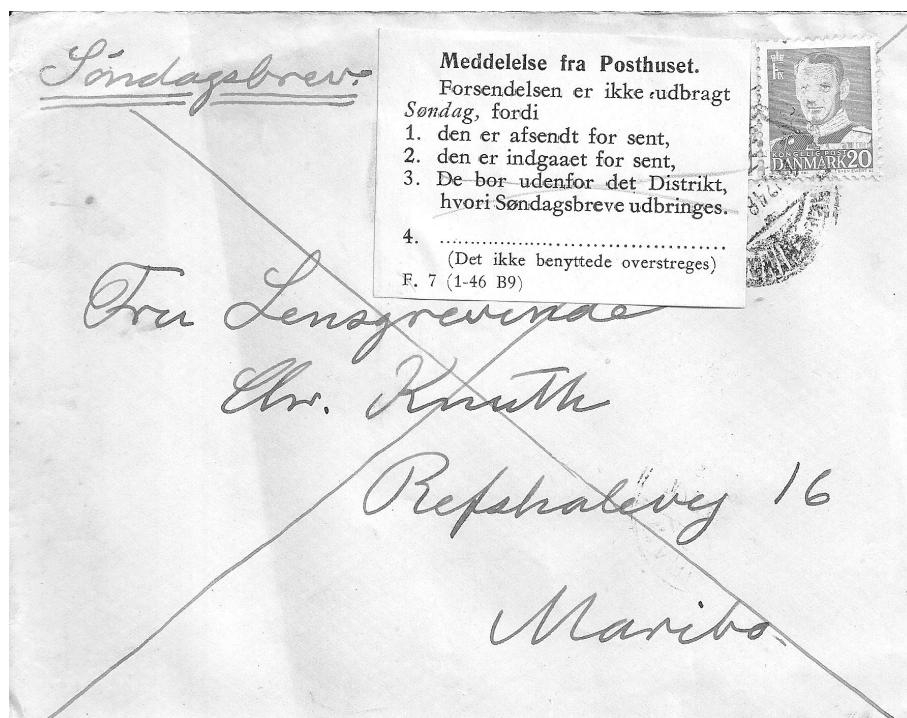 Søndagsbrev.
Meddelelse fra Posthuset.
Forsendelsen er ikke udbragt
Søndag, fordi
1. den er afsendt for sent,
2. den er indgaaet for sent,
3. De bor udenfor det Distrikt,
hvori Søndagsbreve udbringes.
4. ........................................
(Det ikke benyttede overstreges)
F. 7 (1-46 B9)
KONGELIG POST
DANMARK 20
Fru Lensgrevinde
Chr. Knuth
Refshalevej 16
Maribo